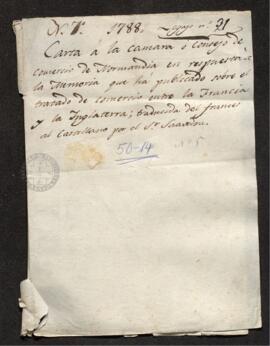 N.º 7º 1788. Legajo nº 21
Carta a la camara o consejo de
comercio de Normandia en respuesta a
la Memoria que ha publicado sobre el
tratado de comercio entre la Francia
y la Inglaterra; traducida del frances
al Castellano por el Sr.
50-14